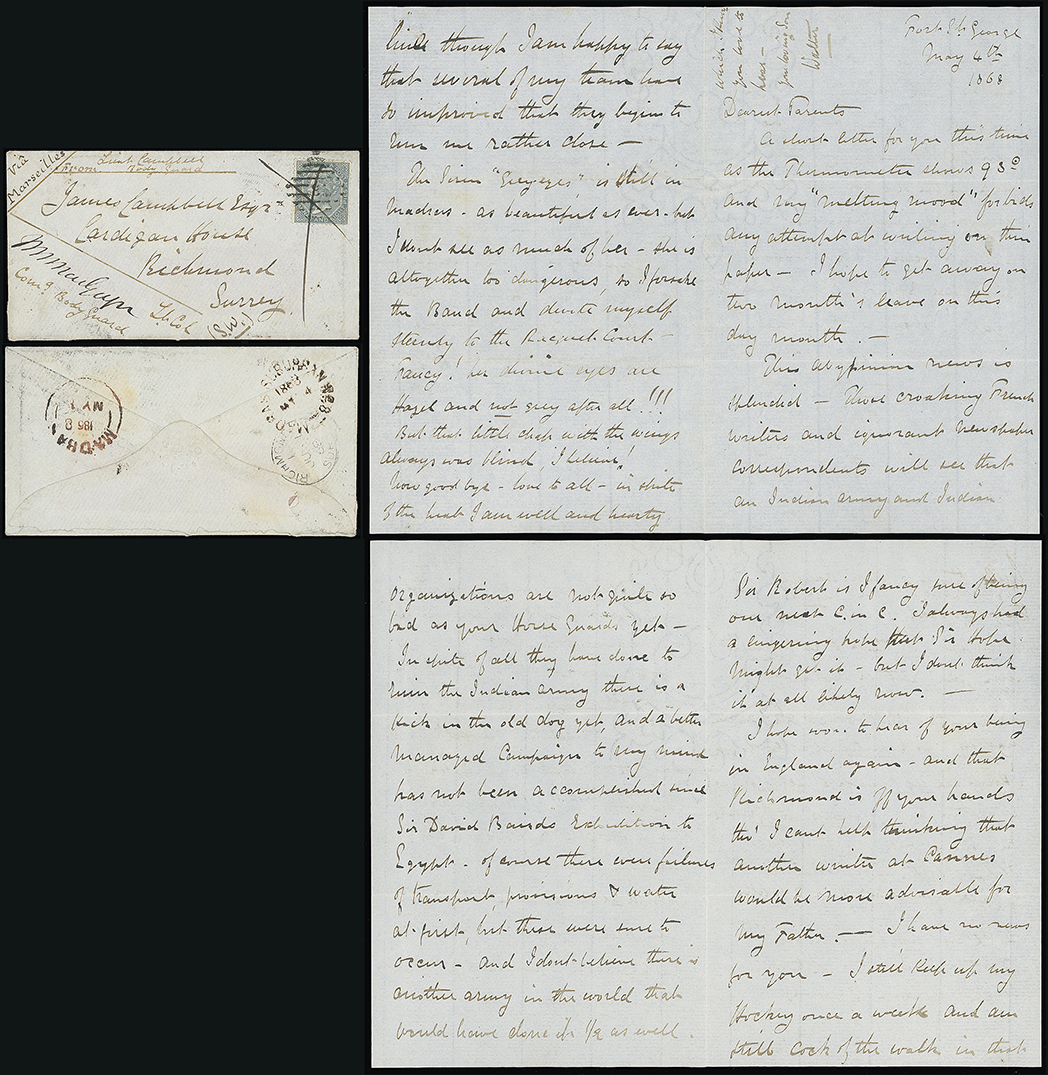 Via
Marseilles
From Lieut Campbell
Body Guard
James Campbell Esqr
Cardigan House
Richmond
Surrey
(S.W.)
Lt Col
Comg Body Guard
MADRAS
MY
1868
MADRAS SUBURBAN
1868
MY 4
RICHMOND
Fort St. George
May 4th
1868
Dearest Parents
A short letter for you this time
as the Thermometer shows 93°
and my "melting mood" forbids
any attempt at writing on thin
paper — I hope to get away on
two month's leave on this
day month. —
This Abyssinian news is
splendid — those croaking French
writers and ignorant newspaper
correspondents will see that
an Indian army and Indian
organizations are not quite so
bad as your Horse Guards yet —
In spite of all they have done to
ruin the Indian army there is a
kick in the old dog yet, and a better
managed Campaign to my mind
has not been accomplished since
Sir David Bairds Expedition to
Egypt - of course there were failures
of transport, provisions & water
at first, but these were sure to
occur - and I dont believe there is
another army in the world that
would have done it 1/2 as well.
Sir Robert is I fancy sure of being
our next C. in C. I always had
a lingering hope that Sir Hope
might get it - but I dont think
it at all likely now. —
I hope soon to hear of your being
in England again - and that
Richmond is off your hands
tho' I cant help thinking that
another winter at Cannes
would be more advisable for
my Father. — I have no news
for you — I still keep up my
Hockey once a week and am
still cock of the walk in that
line though I am happy to say
that several of my team have
so improved that they begin to
run me rather close —
The Siren "Grey eyes" is still in
Madras - as beautiful as ever - but
I dont see as much of her - she is
altogether too dangerous so I forsake
the Band and devote myself
sternly to the Racquet Court —
Fancy! her divine eyes are
Hazel and not grey after all!!!
But that little chap with the wings
always was blind, I believe!
Now good bye - love to all - in spite
of the heat I am well and hearty
which I know
you love to
hear —
your loving Son
Walter